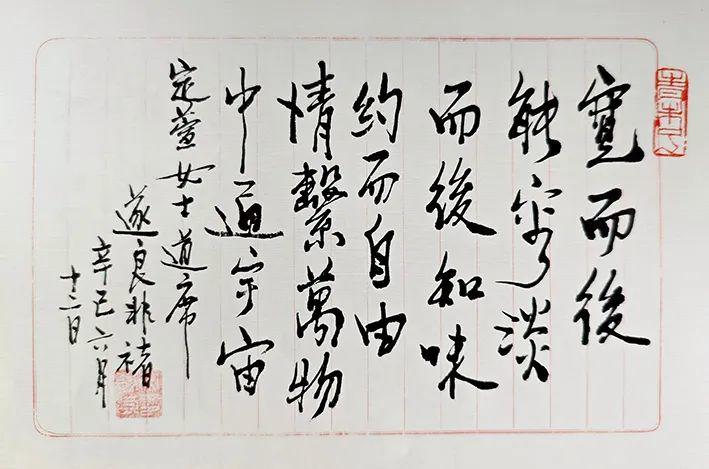 寬而後
能容淡
而後知味
約而自由
情繫萬物
中通宇宙
定萱女士道席
遂良非褚
辛巳六月
十二日